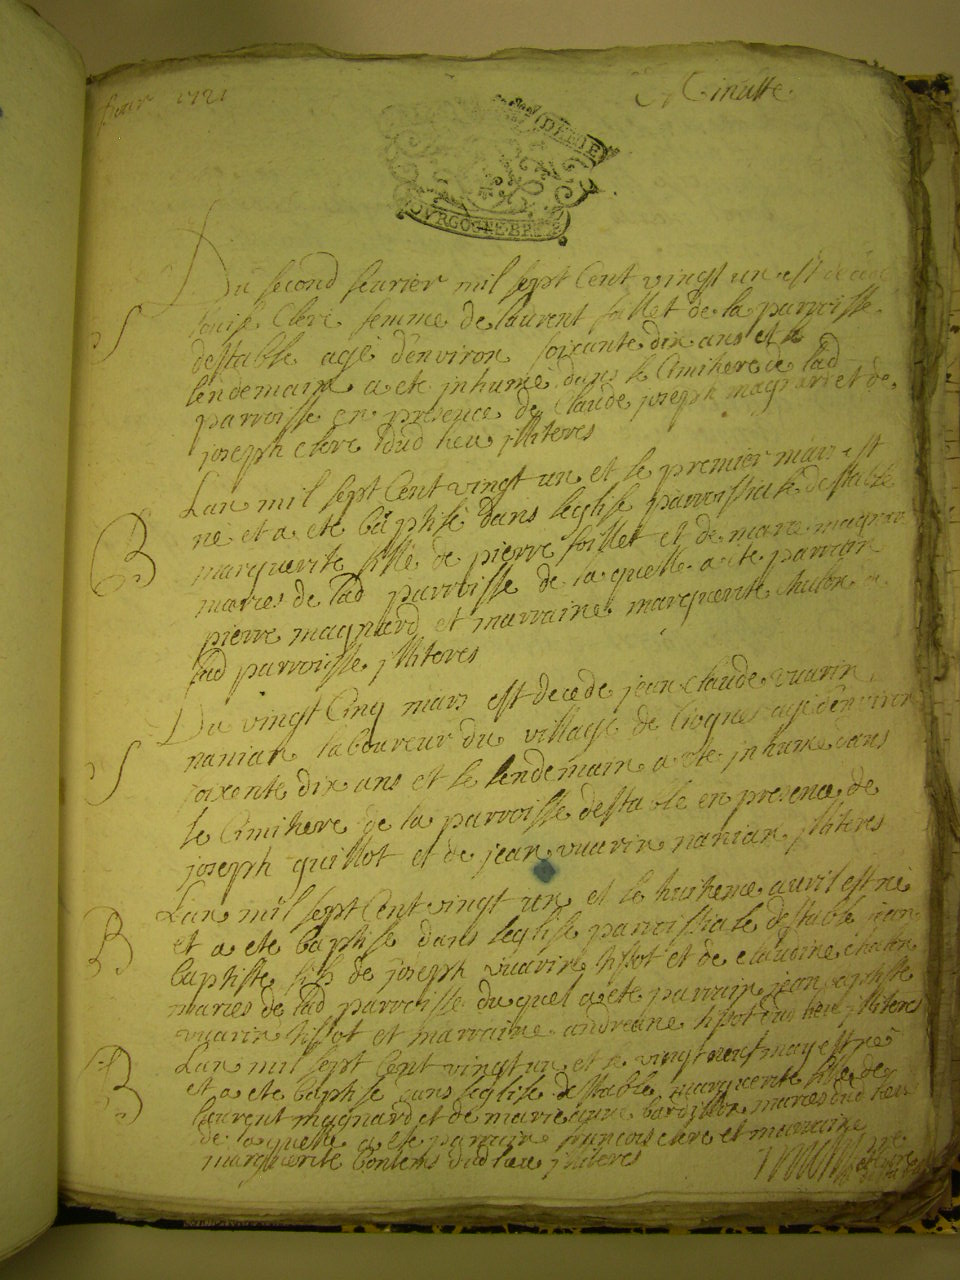 1721
Minutte
DENIE
OVRGOGNE·BRE
Du second feurier mil sept Cent vingt un est decede
louise Clerc femme de laurent follet de la parroisse
destable agé denviron soixante dix ans et le
lendemain a eté jnhumé dans le Cimitiere de lad
parroisse en presence de Claude joseph magnard et de
joseph clerc dud lieu jlliteres
S
Lan mil sept Cent vingt un et le premier mars est
né et a eté baptisé dans leglise parroissiale destable
marguerite fille de pierre follet et de marie magnard
maries de lad parroisse de la quelle a ete parrain
pierre magnard et marraine marguerite chalon de
lad parroisse jlliteres
B
Du vingt Cinq mars est decede jean claude vuarin
nanian laboureur du village de liogne agé denviron
soixente dix ans et le lendemain a ete jnhume dans
le Cimitiere de la parroisse destable en presence de
joseph guillot et de jean vuarin nanian jlliteres
S
Lan mil sept Cent vingt un et le huitieme auril est né
et a ete baptise dans leglise parroissiale destable jean
baptiste fils de joseph vuarin tissot et de claudine chalon
maries de lad parroisse du quel a ete parrain jean baptiste
vuarin tissot et marraine andreane tissot dud lieu jlliteres
B
Lan mil sept Cent vingt un et le vingt neuf may est né
et a ete baptise dans leglise destable marguerite fille de
laurent magnard et de marie maries dud lieu
de la quelle a ete parrain francois clerc et marraine
marguerite Contens dud lieu jlliteres
B